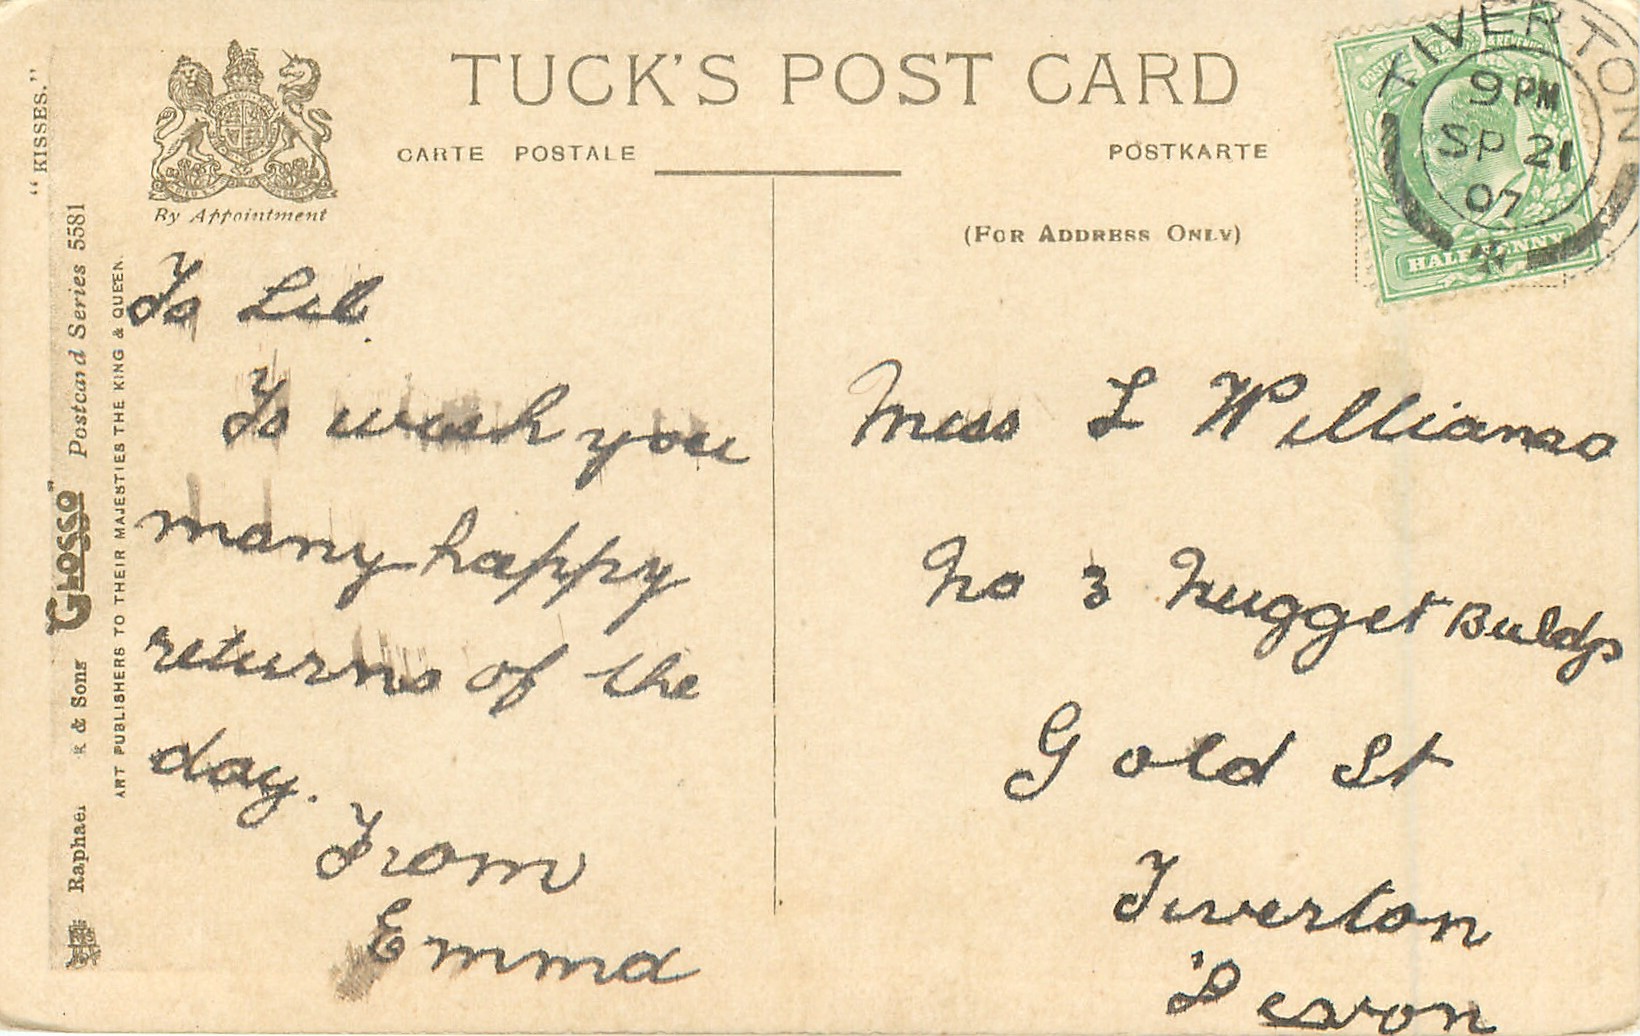 TUCK'S POST CARD
CARTE POSTALE
POSTKARTE
(FOR ADDRESS ONLY)
By Appointment
"KISSES."
Raphael & Sons "GLOSSO" Postcard Series 5581
ART PUBLISHERS TO THEIR MAJESTIES THE KING & QUEEN.
TIVERTON
9 PM
SP 21
07
HALFPENNY
To Lil.
To wish you
many happy
returns of the
day.
From
Emma
Miss L Williams
No 3 Nugget Buldgs
Gold St
Tiverton
Devon